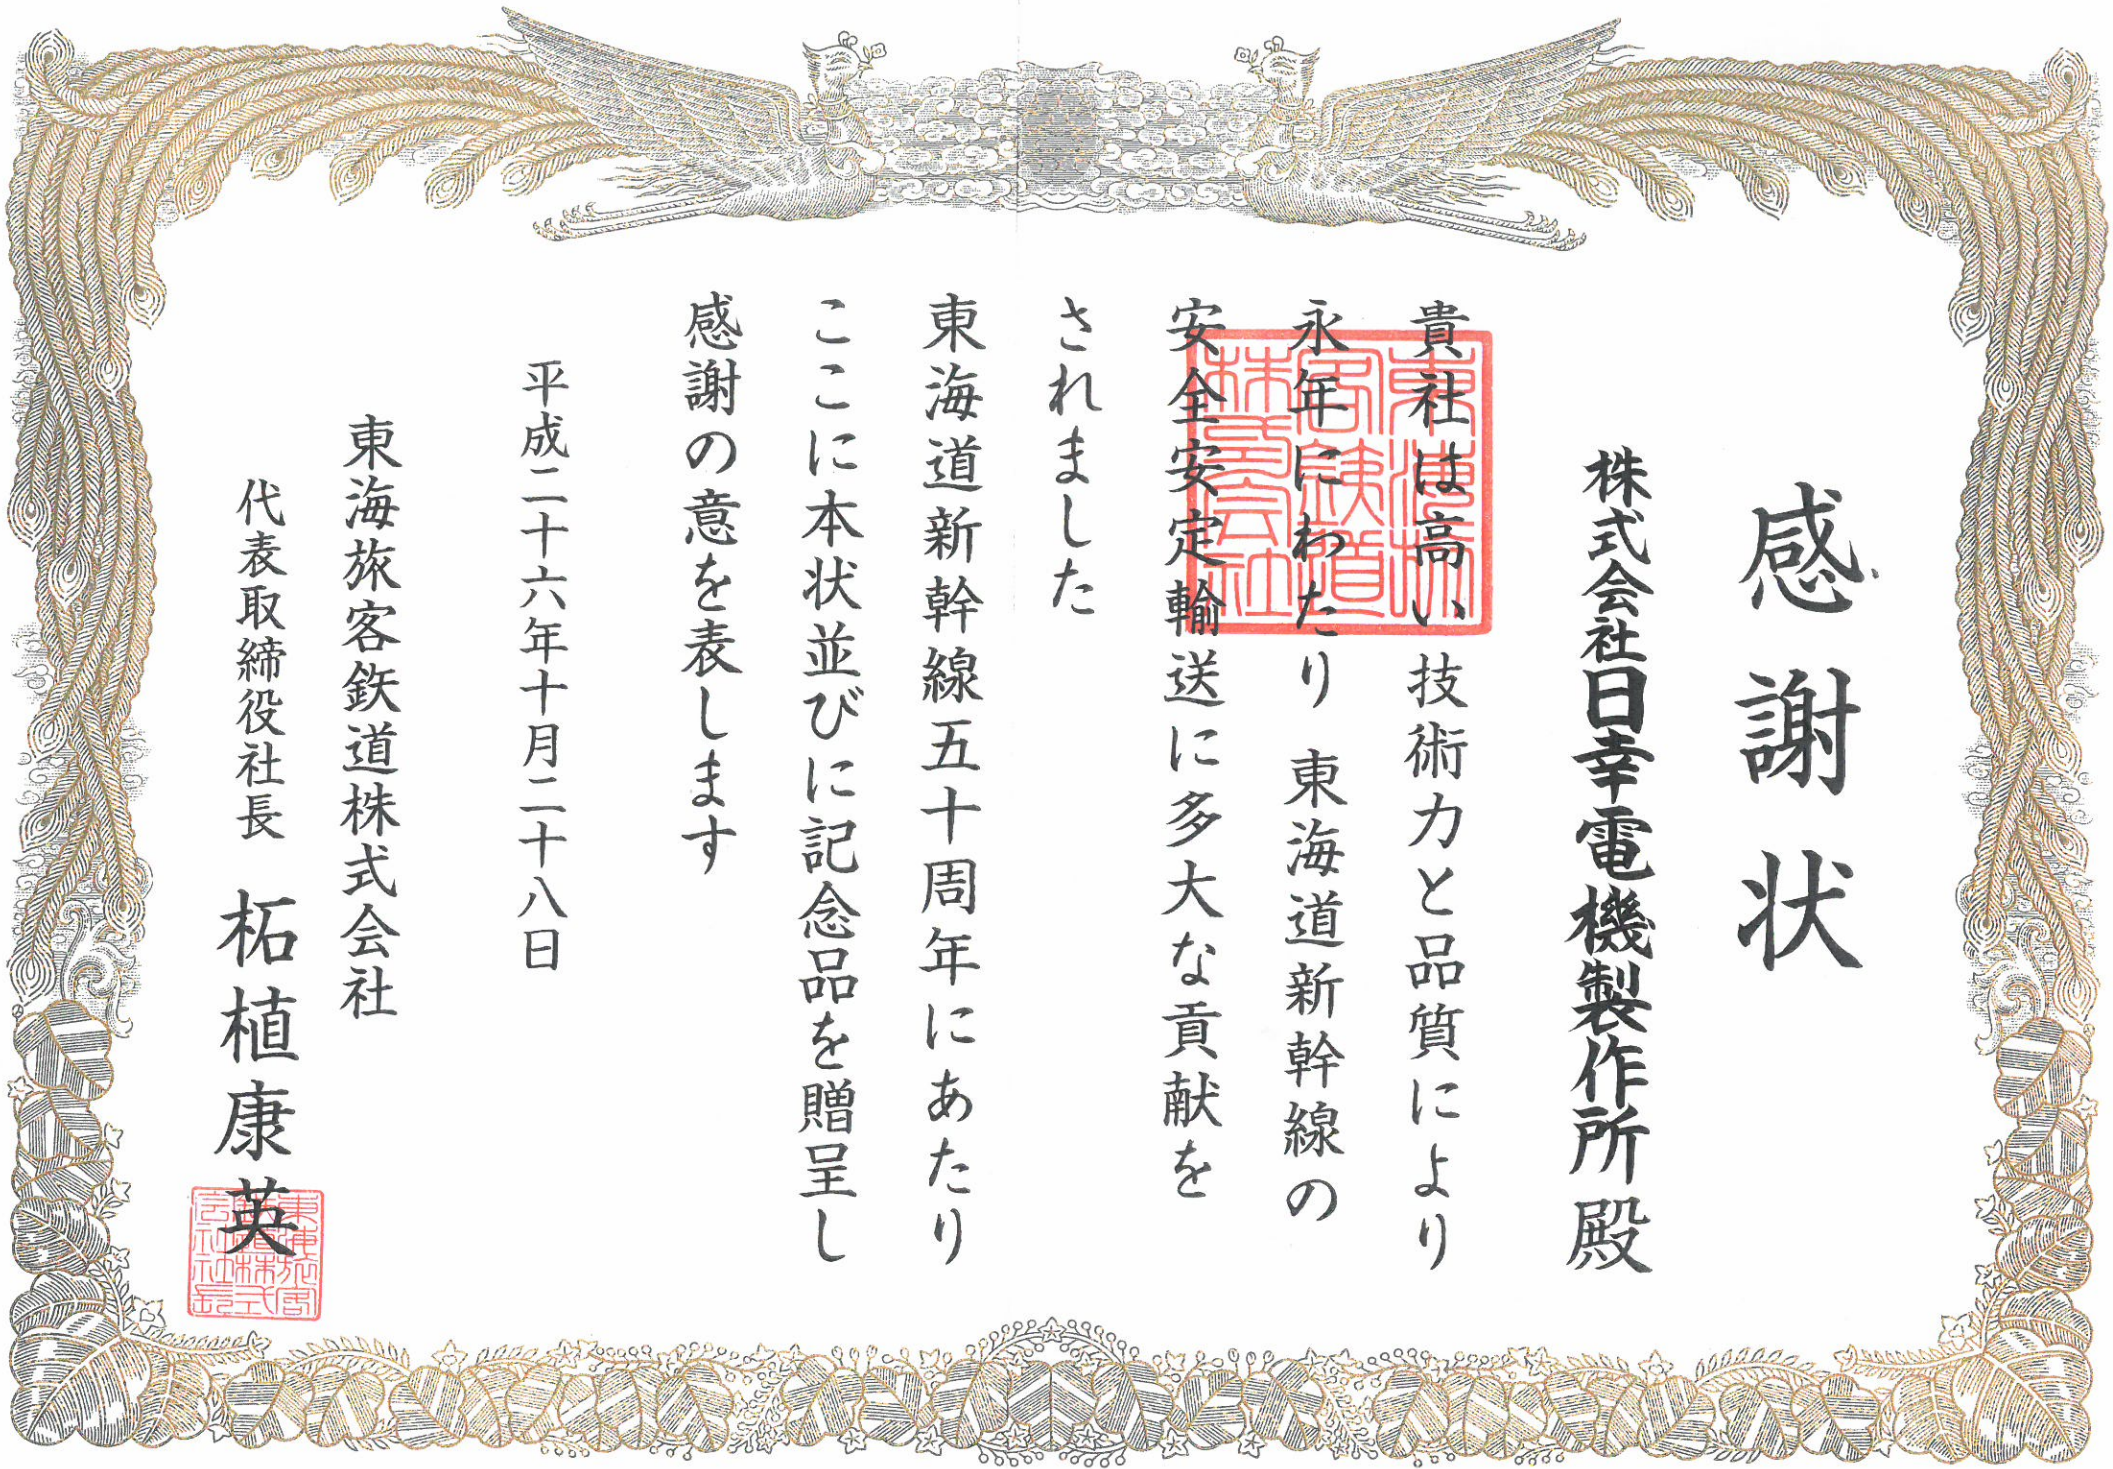 感謝状
株式会社日幸電機製作所殿
貴社は高い技術力と品質により
永年にわたり 東海道新幹線の
安全安定輸送に多大な貢献を
されました
東海道新幹線五十周年にあたり
ここに本状並びに記念品を贈呈し
感謝の意を表します
平成二十六年十月二十八日
東海旅客鉃道株式会社
代表取締役社長 柘植康英
東海旅
客鉄道
株式会社
東海旅客
鉄道株式
会社社長